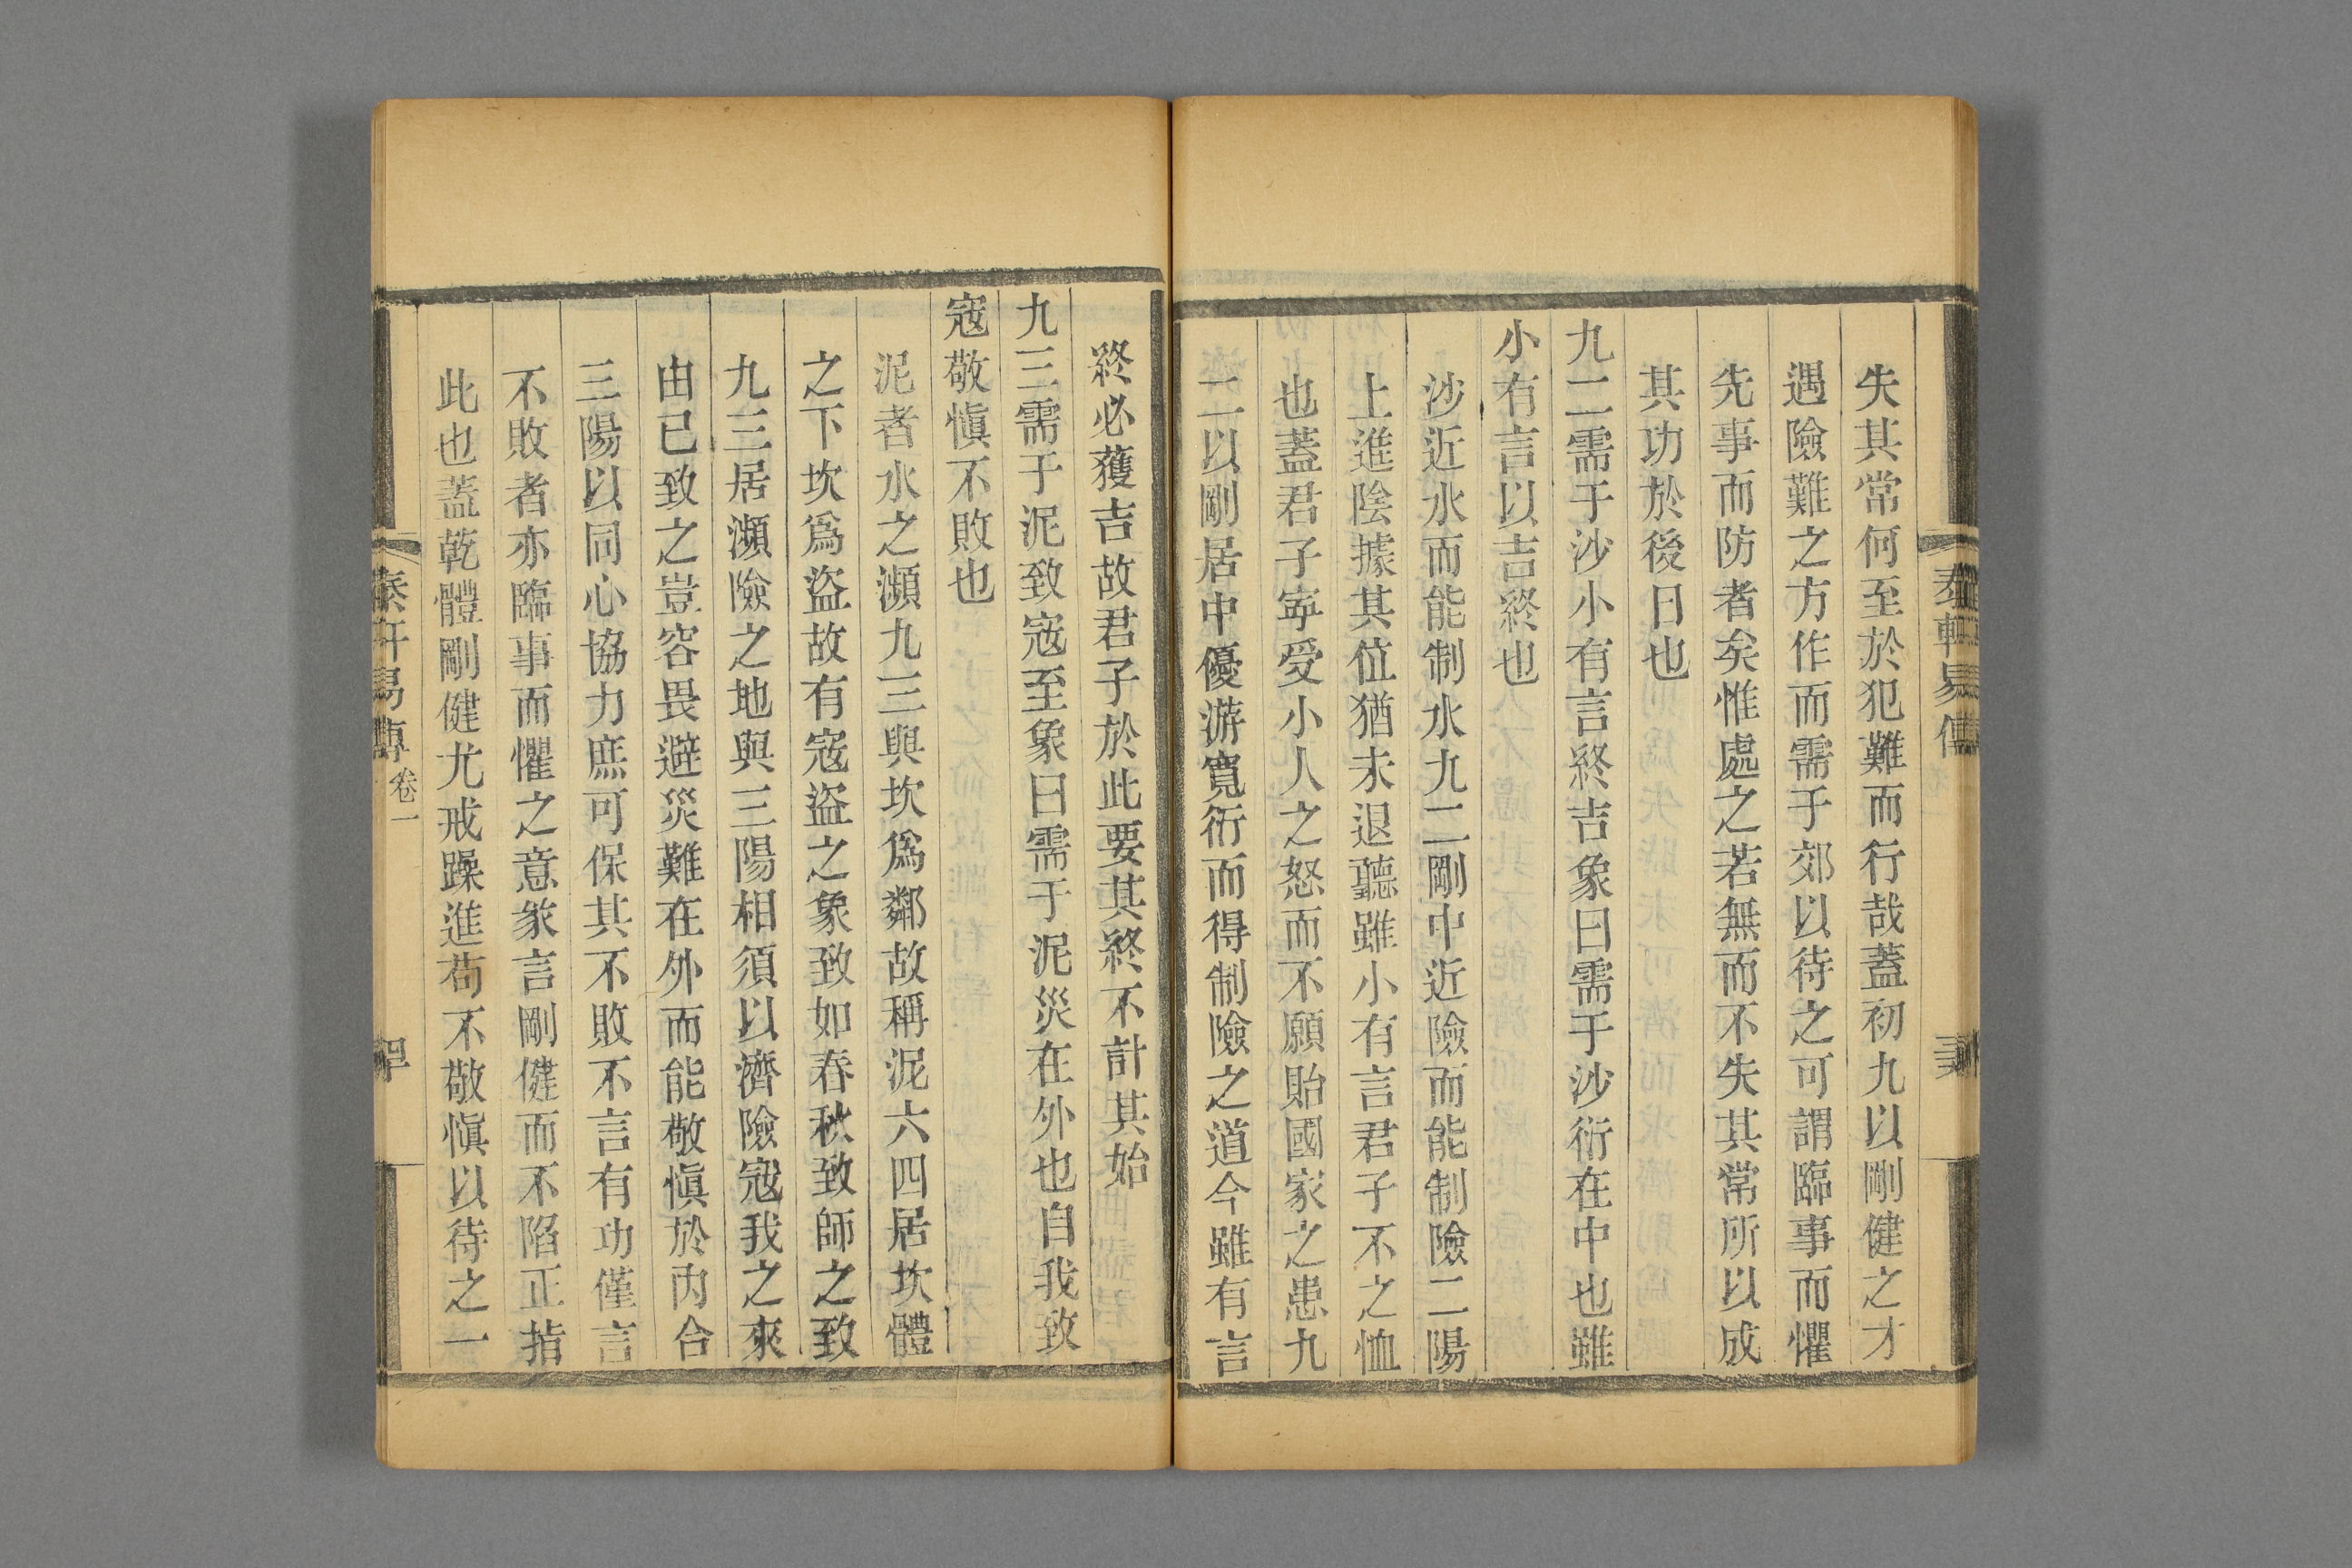 失其常何至於犯難而行哉蓋初九以剛健之才
遇險難之方作而需于郊以待之可謂臨事而懼
先事而防者矣惟處之若無而不失其常所以成
其功於後日也
九二需于沙小有言終吉象曰需于沙衍在中也雖
小有言以吉終也
沙近水而能制水九二剛中近險而能制險二陽
上進陰據其位猶未退聽雖小有言君子不之恤
也蓋君子寧受小人之怒而不願貽國家之患九
二以剛居中優游寬衍而得制險之道今雖有言
終必獲吉故君子於此要其終不計其始
九三需于泥致寇至象曰需于泥災在外也自我致
寇敬愼不敗也
泥者水之瀕九三與坎爲鄰故稱泥六四居坎體
之下坎爲盜故有寇盜之象致如春秋致師之致
九三居瀕險之地與三陽相須以濟險寇我之來
由已致之豈容畏避災難在外而能敬愼於內合
三陽以同心協力庶可保其不敗不言有功僅言
不敗者亦臨事而懼之意彖言剛健而不陷正指
此也蓋乾體剛健尤戒躁進苟不敬愼以待之一
易傳
卷一